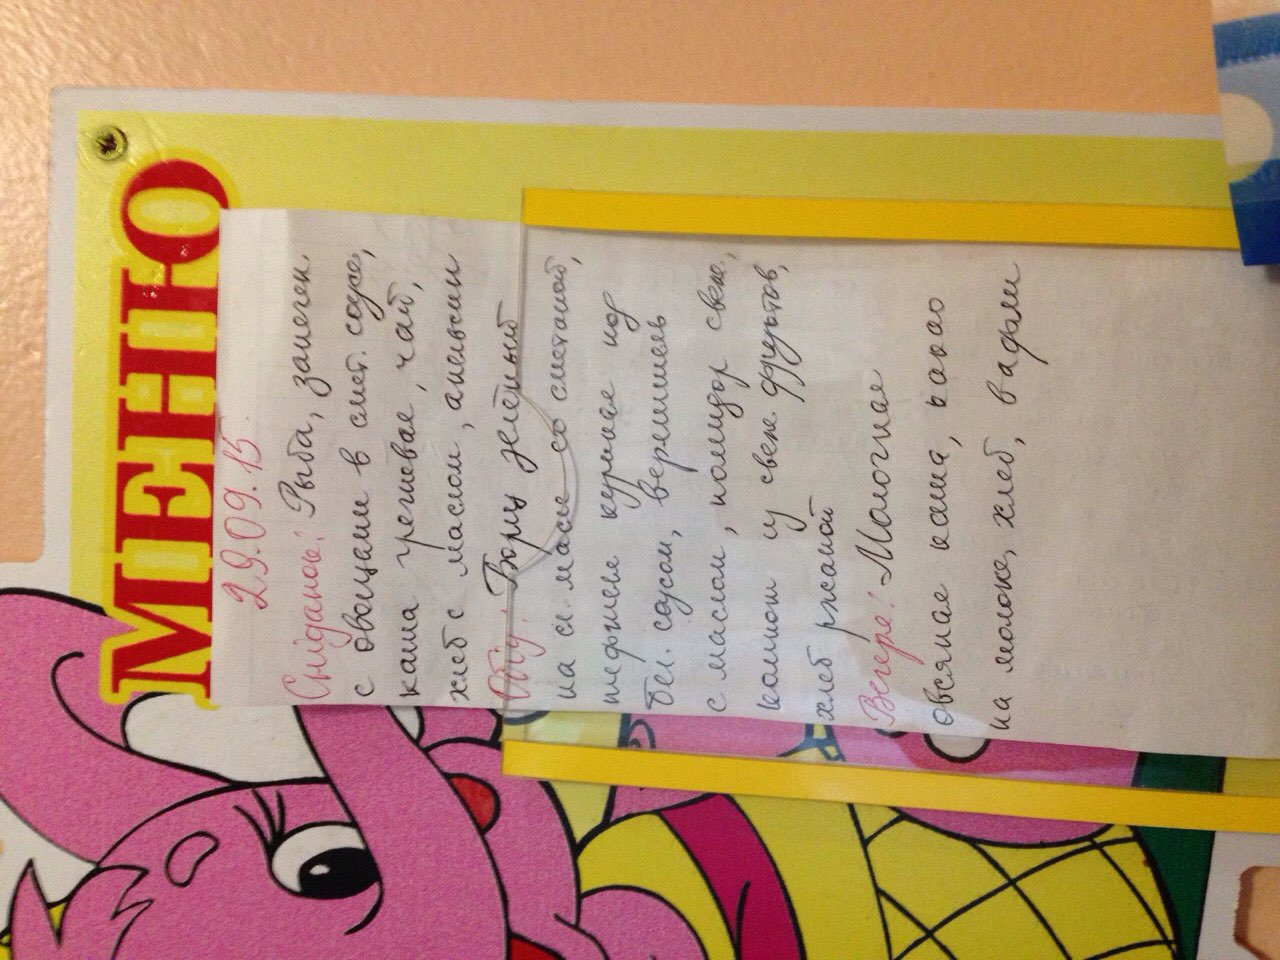 МЕНЮ
29.09.15.
Сніданок: Рыба, запечен.
с овощами в смет. соусе,
каша гречневая, чай,
хлеб с маслом, апельсин
Обід: Борщ зелёный
на сл. масле со сметаной,
тефтели куриные под
бел. соусом, вермишель
с маслом, помидор свеж.,
компот из свеж фруктов,
хлеб ржаной
Вечеря: Молочная
овсяная каша, какао
на молоке, хлеб, вафли